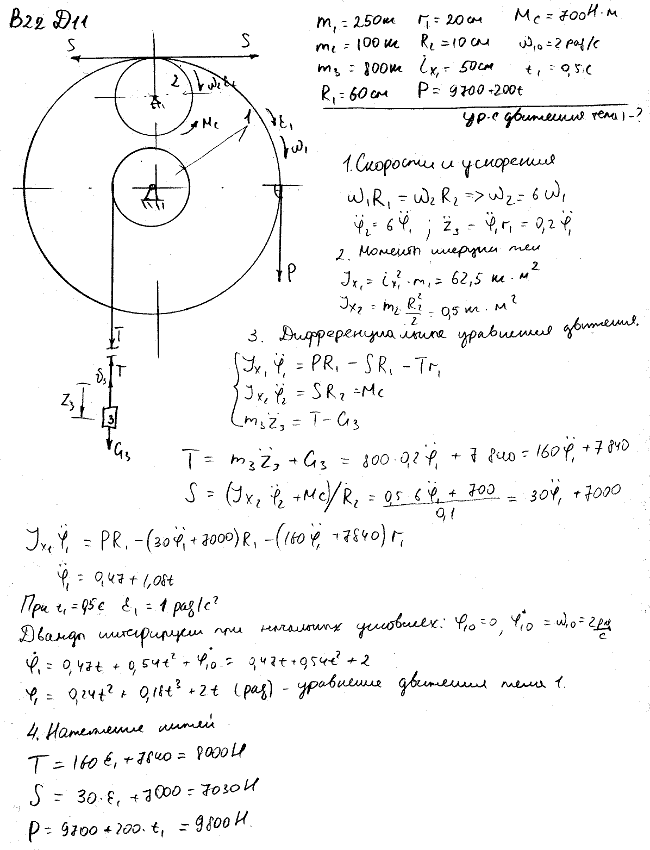 В22 Д11
m₁ = 250 кг r₁ = 20 см Mc = 700 Н·м
m₂ = 100 кг R₂ = 10 см ω₁₀ = 2 рад/с
m₃ = 800 кг i_x₁ = 50 см t₁ = 0,5 с
R₁ = 60 см P = 9700 + 200t
ур-е движения тела 1 - ?
S S
2 ω₂ ε₂
Mc 1 ε₁
ω₁
P
T
T
Z₃
3
G₃
1. Скорости и ускорения
ω₁R₁ = ω₂R₂ => ω₂ = 6ω₁
φ̈₂ = 6φ̈₁ ; z̈₃ = φ̈₁r₁ = 0,2φ̈₁
2. Моменты инерции тел
Jx₁ = i_x₁² · m₁ = 62,5 кг·м²
Jx₂ = m₂ · R₂²/2 = 0,5 кг·м²
3. Дифференциальные уравнения движения.
Jx₁φ̈₁ = PR₁ - SR₁ - Tr₁
Jx₂φ̈₂ = SR₂ - Mc
m₃z̈₃ = T - G₃
T = m₃z̈₃ + G₃ = 800·0,2φ̈₁ + 7840 = 160φ̈₁ + 7840
S = (Jx₂φ̈₂ + Mc)/R₂ = (0,5 6φ̈₁ + 700)/0,1 = 30φ̈₁ + 7000
Jx₁φ̈₁ = PR₁ - (30φ̈₁ + 7000)R₁ - (160φ̈₁ + 7840)r₁
φ̈₁ = 0,47 + 1,08t
При t₁ = 0,5 с ε₁ = 1 рад/с²
Дважды интегрируем при начальных условиях: φ₁₀ = 0, φ̇₁₀ = ω₁₀ = 2 рад/с
φ̇₁ = 0,47t + 0,54t² + φ̇₁₀ = 0,47t + 0,54t² + 2
φ₁ = 0,24t² + 0,18t³ + 2t (рад) - уравнение движения тела 1.
4. Натяжение нитей
T = 160ε₁ + 7840 = 8000 Н
S = 30·ε₁ + 7000 = 7030 Н
P = 9700 + 200·t₁ = 9800 Н